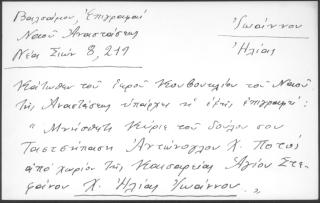 Βαλσάμου, Ἐπιγραφαί
Ναοῦ Ἀναστάσεως
Νέα Σιών 8, 211
Ἰωάννου
Ἠλίας
Κάτωθεν τοῦ ἱεροῦ Κουβουκλίου τοῦ Ναοῦ
τῆς Ἀναστάσεως ὑπάρχει ἡ ἑξῆς ἐπιγραφή:
" Μνήσθητι Κύριε τοῦ δούλου σου
Χ.
ἀπό χωρίον τῆς Καισαρείας Ἁγίου Στε-
φάνου Χ. Ἠλίας Ἰωάννου. "